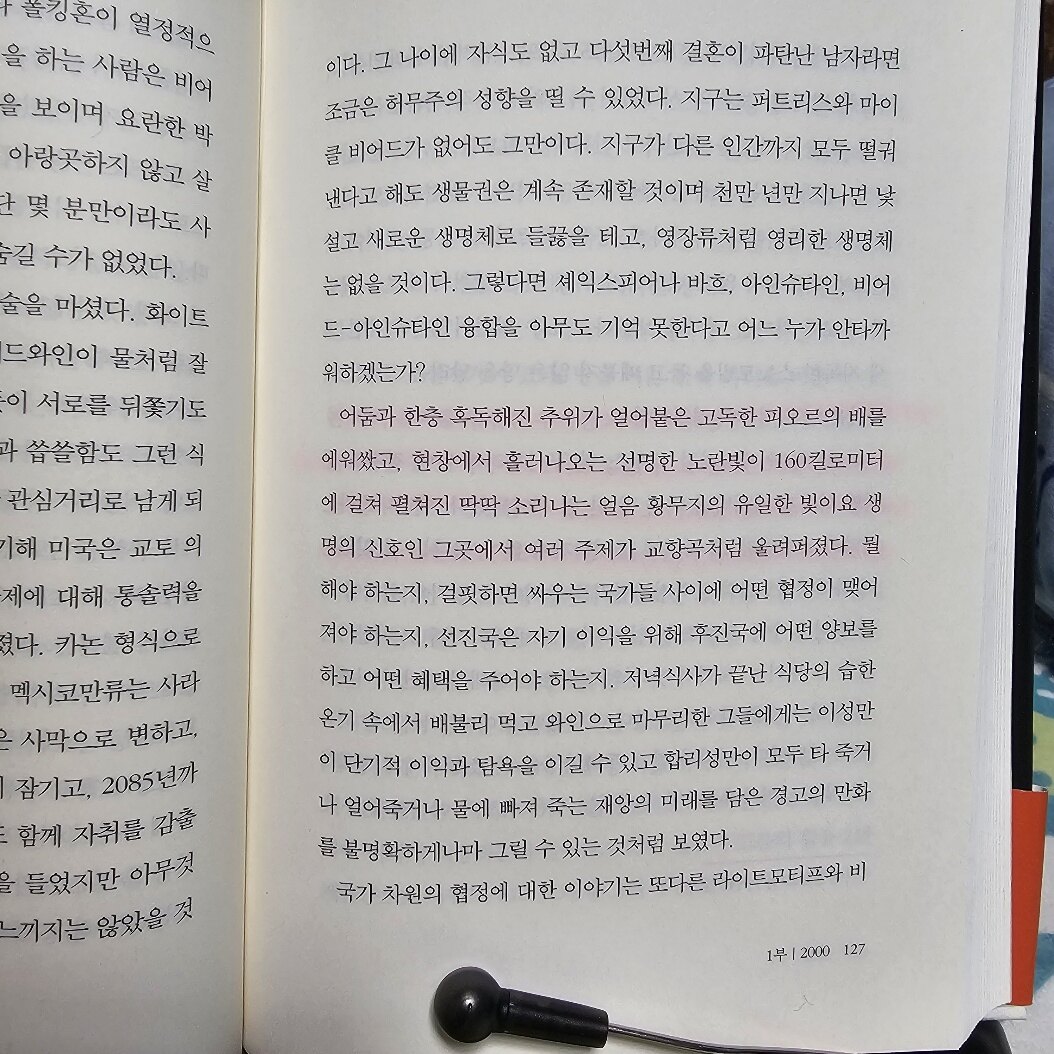 폴킹혼이 열정적으
을 하는 사람은 비어
을 보이며 요란한 박
아랑곳하지 않고 살
단 몇 분만이라도 사
숨길 수가 없었다.
술을 마셨다. 화이트
드와인이 물처럼 잘
들이 서로를 뒤쫓기도
과 씁쓸함도 그런 식
관심거리로 남게 되
기해 미국은 교토 의
제에 대해 통솔력을
졌다. 카논 형식으로
멕시코만류는 사라
은 사막으로 변하고,
잠기고, 2085년까
함께 자취를 감출
을 들었지만 아무것
느끼지는 않았을 것
이다. 그 나이에 자식도 없고 다섯번째 결혼이 파탄난 남자라면
조금은 허무주의 성향을 띨 수 있었다. 지구는 퍼트리스와 마이
클 비어드가 없어도 그만이다. 지구가 다른 인간까지 모두 떨궈
낸다고 해도 생물권은 계속 존재할 것이며 천만 년만 지나면 낯
설고 새로운 생명체로 들끓을 테고, 영장류처럼 영리한 생명체
는 없을 것이다. 그렇다면 셰익스피어나 바흐, 아인슈타인, 비어
드-아인슈타인 융합을 아무도 기억 못한다고 어느 누가 안타까
워하겠는가?
어둠과 한층 혹독해진 추위가 얼어붙은 고독한 피오르의 배를
에워쌌고, 현창에서 흘러나오는 선명한 노란빛이 160킬로미터
에 걸쳐 펼쳐진 딱딱 소리나는 얼음 황무지의 유일한 빛이요 생
명의 신호인 그곳에서 여러 주제가 교향곡처럼 울려퍼졌다. 뭘
해야 하는지, 걸핏하면 싸우는 국가들 사이에 어떤 협정이 맺어
져야 하는지, 선진국은 자기 이익을 위해 후진국에 어떤 양보를
하고 어떤 혜택을 주어야 하는지. 저녁식사가 끝난 식당의 습한
온기 속에서 배불리 먹고 와인으로 마무리한 그들에게는 이성만
이 단기적 이익과 탐욕을 이길 수 있고 합리성만이 모두 타 죽거
나 얼어죽거나 물에 빠져 죽는 재앙의 미래를 담은 경고의 만화
를 불명확하게나마 그릴 수 있는 것처럼 보였다.
국가 차원의 협정에 대한 이야기는 또다른 라이트모티프와 비
1부 | 2000 127